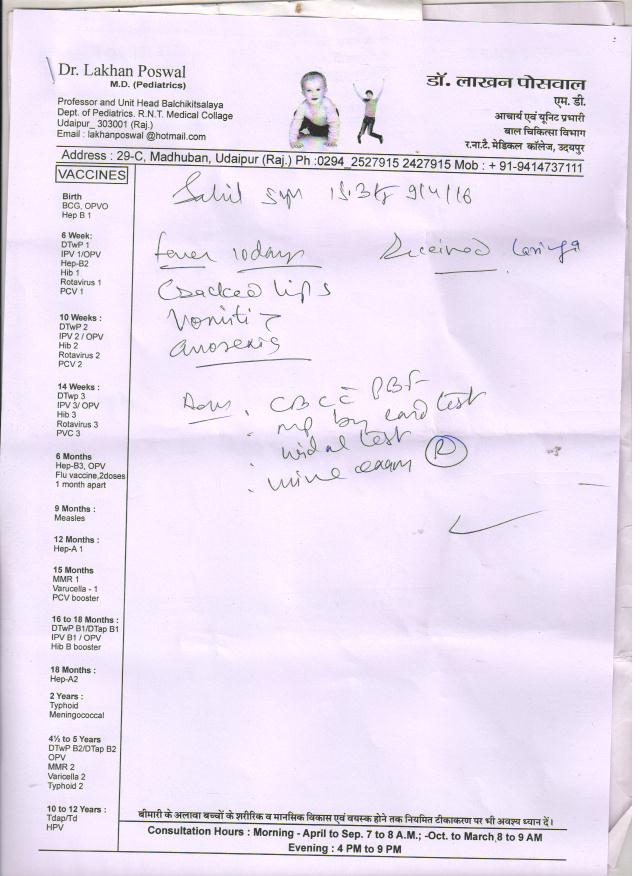 Dr. Lakhan Poswal
M.D. (Pediatrics)
Professor and Unit Head Balchikitsalaya
Dept. of Pediatrics. R.N.T. Medical Collage
Udaipur_ 303001 (Raj.)
Email : lakhanposwal @hotmail.com
डॉ. लाखन पोसवाल
एम. डी.
आचार्य एवं यूनिट प्रभारी
बाल चिकित्सा विभाग
र.ना.टै. मेडिकल कॉलेज, उदयपुर
Address : 29-C, Madhuban, Udaipur (Raj.) Ph :0294_2527915 2427915 Mob : + 91-9414737111
VACCINES
Birth
BCG, OPVO
Hep B 1
6 Week:
DTwP 1
IPV 1/OPV
Hep-B2
Hib 1
Rotavirus 1
PCV 1
10 Weeks :
DTwP 2
IPV 2 / OPV
Hib 2
Rotavirus 2
PCV 2
14 Weeks :
DTwp 3
IPV 3/ OPV
Hib 3
Rotavirus 3
PVC 3
6 Months
Hep-B3, OPV
Flu vaccine,2doses
1 month apart
9 Months :
Measles
12 Months :
Hep-A 1
15 Months
MMR 1
Varucella - 1
PCV booster
16 to 18 Months :
DTwP B1/DTap B1
IPV B1 / OPV
Hib B booster
18 Months :
Hep-A2
2 Years :
Typhoid
Meningococcal
4½ to 5 Years
DTwP B2/DTap B2
OPV
MMR 2
Varicella 2
Typhoid 2
10 to 12 Years :
Tdap/Td
HPV
Sahil 9/4/16
fever 10 days Received
Cracked lips
Vomiting
anorexia
Adv. CBC c̄ PBF
mp by card test
widal test
urine exam R
बीमारी के अलावा बच्चों के शरीरिक व मानसिक विकास एवं वयस्क होने तक नियमित टीकाकरण पर भी अवश्य ध्यान दें।
Consultation Hours : Morning - April to Sep. 7 to 8 A.M.; -Oct. to March 8 to 9 AM
Evening : 4 PM to 9 PM